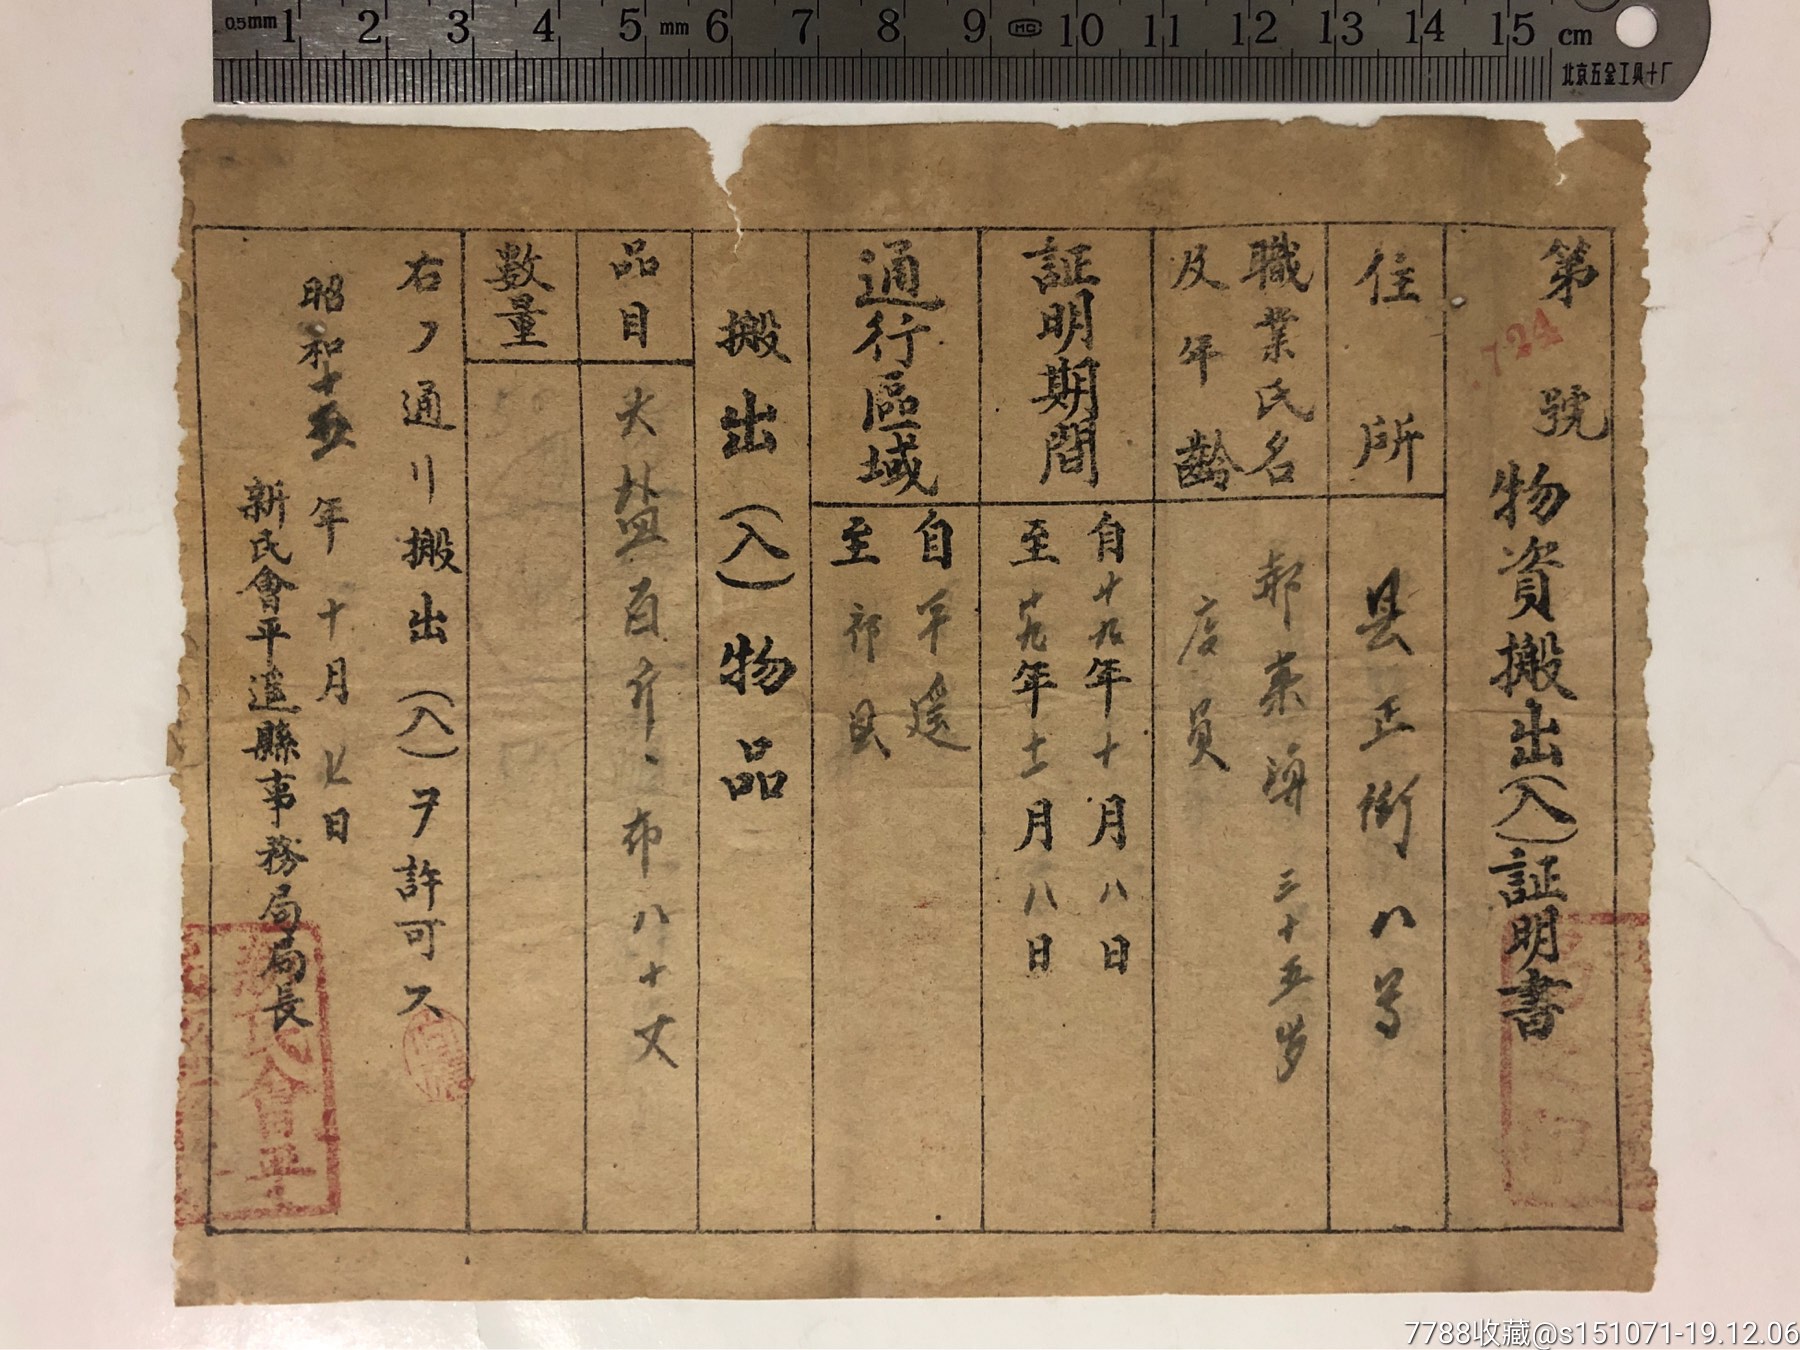 0.5mm 1 2 3 4 5 mm 6 7 8 9 MC 10 11 12 13 14 15 cm
北京五金工具十厂
第 號
724
物資搬出(入)証明書
住所
县正街八号
職業氏名
及年齢
三十五岁
店員
証明期間
自廿九年十月八日
至廿九年十一月八日
通行區域
自平遥
至祁县
搬出(入)物品
品目
大盐百斤、布八十丈
數量
右ノ通リ搬出(入)ヲ許可ス
昭和十五年十月七日
新民會平遥縣事務局局長
新民會平
7788收藏@s151071-19.12.06